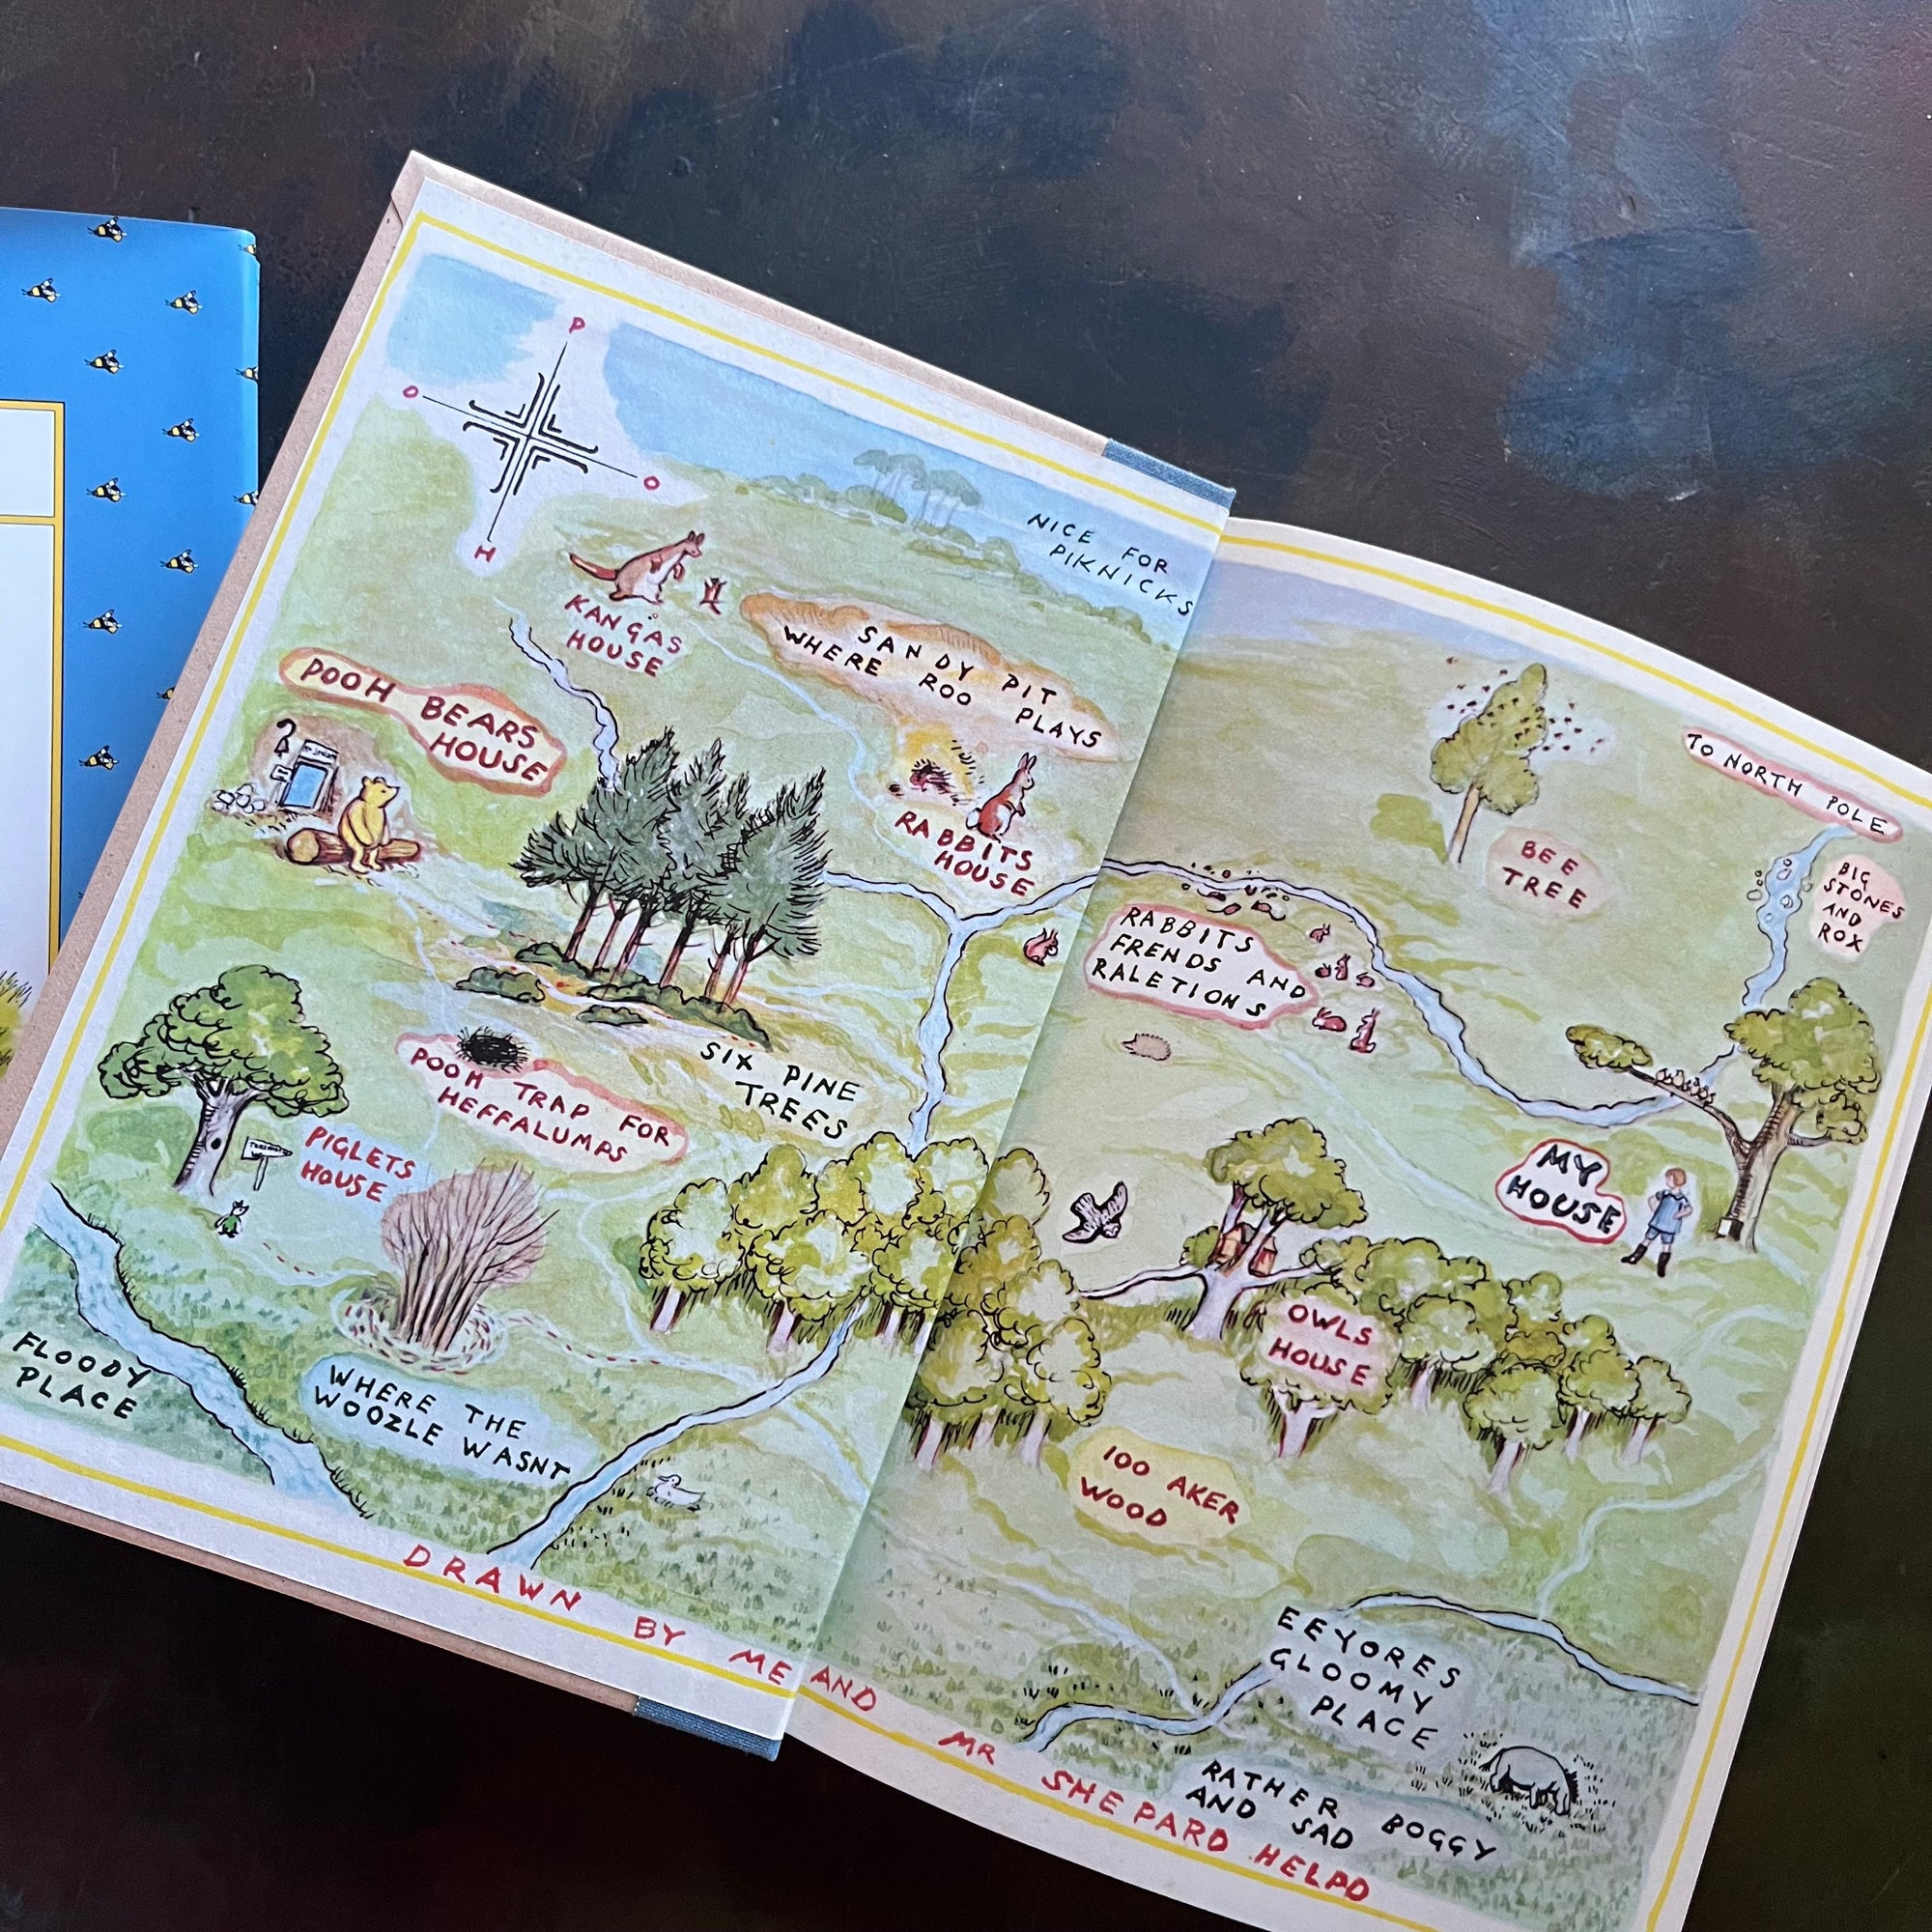 P
O
O
H
NICE FOR
PIKNICKS
KANGAS
HOUSE
SANDY PIT
WHERE ROO PLAYS
POOH BEARS
HOUSE
RABBITS
HOUSE
BEE
TREE
TO NORTH POLE
BIG
STONES
AND
ROX
RABBITS
FRENDS AND
RALETIONS
SIX PINE
TREES
POOH TRAP FOR
HEFFALUMPS
PIGLETS
HOUSE
MY
HOUSE
OWLS
HOUSE
FLOODY
PLACE
WHERE THE
WOOZLE WASNT
100 AKER
WOOD
EEYORES
GLOOMY
PLACE
RATHER BOGGY
AND SAD
DRAWN BY ME AND MR SHEPARD HELPD